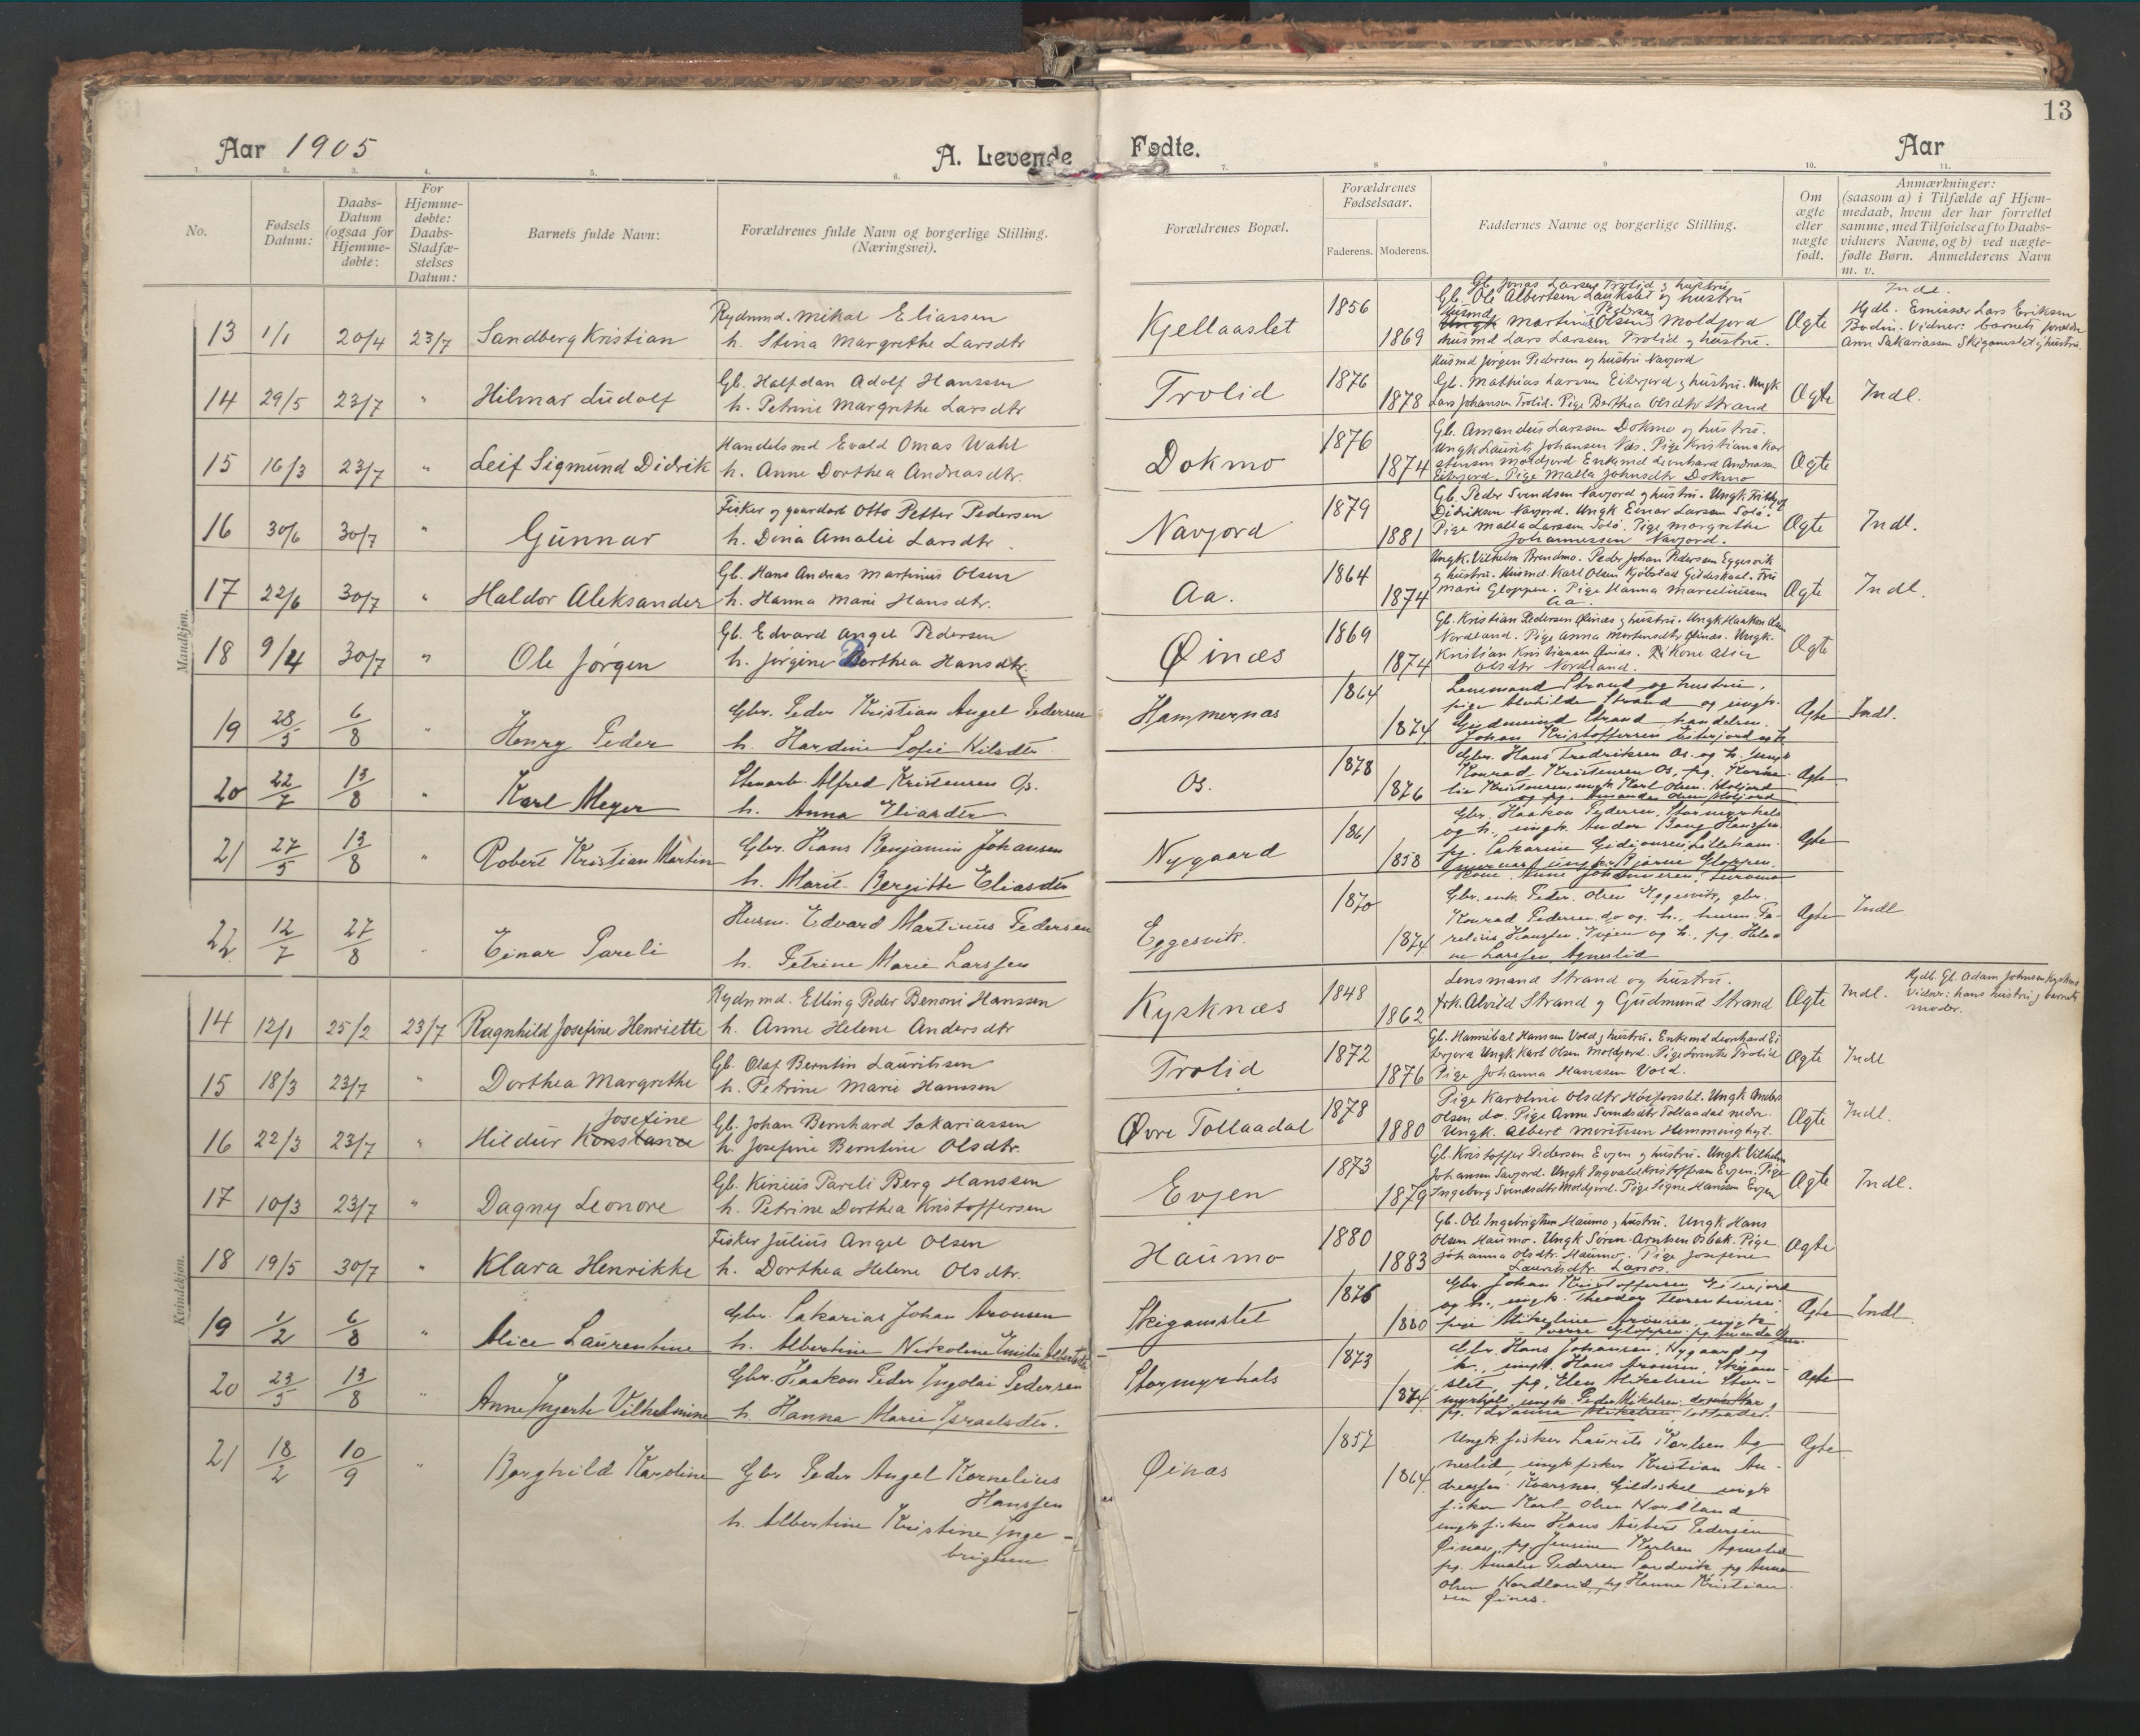 13
Aar 1905
A. Levende Fødte.
Aar
1. 2. 3. 4. 5. 6. 7. 8 9 10. 11.
No.
Fødsels Datum:
Daabs-Datum (ogsaa for Hjemme-døbte:
For Hjemme-døbte: Daabs-Stadfæ-stelses Datum:
Barnets fulde Navn:
Forældrenes fulde Navn og borgerlige Stilling. (Næringsvei).
Forældrenes Bopæl.
Forældrenes Fødselsaar.
Faderens. Moderens.
Faddernes Navne og borgerlige Stilling.
Om ægte eller uægte født.
Anmærkninger:
(saasom a) i Tilfælde af Hjem-
medaab, hvem der har forrettet
samme, med Tilføielse af to Daabs-
vidners Navne, og b) ved uægte-
fødte Børn. Anmelderens Navn
m. v.
Mandkjøn.
13 1/1 20/4 23/7 Sandberg Kristian
Rydnmd. Mikal Eliassen
h. Stina Margrethe Larsdtr
Kjellaaslet 1856 1869
Gb. Jonas Larsen Trolid & hustru
Gb. Ole Albertsen Laukslet og hustru
Husmd Martin Pedersen Moldjord
husmd Lars Larsen Trolid & hustru.
Ægte
Indl.
Hjdb. Emissær Lars Eriksen
Bodin. Vidner: barnets forældre
Aron Sakariassen Skigamslet & hustru.
14 29/5 23/7 " Hilmar Ludolf
Gb. Halfdan Adolf Hanssen
h. Petrine Margrethe Larsdtr
Trolid 1876 1878
Husmd Jørgen Pedersen og hustru Navjord
Gb. Mathias Larssen Eiterjord & hustru. Ungk
Lars Johansen Trolid. Pige Berthea Olsdtr Strand
Ægte Indl.
15 16/3 23/7 " Leif Sigmund Didrik
Handelsmd Evald Omas Wahl
h. Anne Dorthea Andreasdtr.
Dokmo 1876 1874
Gb. Amandus Larssen Dokmo og hustru.
Ungk Laurits Johansen Næs. Pige Kristiana Kar
stensen Moldjord Enkemd Leonhard Andreassen
Eiterjord. Pige Malla Johnsdtr Dokmo
Ægte
16 30/6 30/7 " Gunnar
Fisker og gaardarb Otto Petter Pedersen
h. Dina Amalie Larsdtr.
Navjord 1879 1881
Gb. Peder Svendsen Navjord & hustru. Ungk
Didriksen Navjord. Ungk Einar Larssen Solø.
Pige Malla Larssen Solø. Pige Margrethe
Johannessen Navjord.
Ægte Indl.
17 22/6 30/7 " Haldor Aleksander
Gb. Hans Andreas Martinus Olsen
h. Hanna Marie Hansdtr.
Aa. 1864 1874
Ungk. Vilhelm Brendmo. Peder Johan Pedersen Eggesvik
& hustru. Husmd. Karl Olsen Kjøbstad Gildeskaal. Fru
Marie Gloppen. Pige Hanna Marceliussen
Aa.
Ægte Indl.
18 9/4 30/7 " Ole Jørgen
Gb. Edvard Angel Pedersen
h. Jørgine Dorthea Hansdtr.
Øinæs 1869 1874
Gb. Kristian Pedersen Øinæs & hustru. Ungk Haaken Olsen
Nordland. Pige Anna Mortensdtr Øinæs. Ungk.
Kristian Kristiansen Øinæs. Kone
Olsdtr Nordland.
Ægte
19 28/5 6/8 " Henry Peder
Gbr. Peder Kristian Angel Pedersen
h. Hardine Sofie Nilsdtr
Hammernæs 1864 1874
Lensmand Strand og hustru,
pige Alvhilde Strand og ungk.
Gudmund Strand, handelsm.
Johan Kristoffersen Eiterjord og h.
Ægte Indl.
20 22/7 13/8 " Karl Meyer
Stenarb. Alfred Kristensen Os.
h. Anna Eliasdtr
Os. 1878 1876
Gbr. Hans Fredriksen Os. og h. ungk
Konrad Kristensen Os, pg.
Kristensen, ungk. Karl Olsen Moljord
og pg. Amanda Olsen Moljord
Ægte
21 27/5 13/8 " Robert Kristian Martin
Gbr. Hans Benjamin Johansen
h. Marie Bergitte Eliasdtr
Nygaard 1861 1858
Gbr. Haakon Pedersen, Stormyrhals
og h., ungk. Andor Berg Hanssen
pg. Sakarine Gidionsen, Lilleham-
mernæs, ungk. Bjarne Gloppen.
Kone Anne Johannesen,
Ægte
22 12/7 27/8 " Einar Pareli
Husm. Edvard Martinus Pedersen
h. Petrine Marie Larssen
Eggesvik. 1870 1874
Gbr. enk. Peder Olsen Eggesvik, gbr.
Konrad Pedersen do og h., husm. Pa-
relius Hanssen Evjen og h., pg.
Larssen Agneslid
Ægte Indl
Kvindekjøn.
14 12/1 25/2 23/7 Ragnhild Josefine Henriette
Rydnmd. Elling Peder Benoni Hanssen
h. Anne Helene Andersdtr
Kysknæs 1848 1862
Lensmand Strand og hustru.
frk. Alvild Strand & Gudmund Strand
Ægte Indl.
Hjdb. Gb. Adam Johnsen Kysknæs
Vidner: hans hustru & barnets
moder.
15 18/3 23/7 " Dorthea Margrethe
Gb. Olaf Berntin Lauritssen
h. Petrine Marie Hanssen
Trolid 1872 1876
Gb. Hannibal Hanssen Vold & hustru. Enkemd Leonhard Ei
terjord Ungk Karl Olsen Moldjord. Pige Trolid
Pige Johanna Hanssen Vold.
Ægte Indl
16 22/3 23/7 " Hildur Konstance Josefine
Gb. Johan Bernhard Sakariassen
h. Josefine Berntine Olsdtr.
Øvre Tollaadal 1878 1880
Pige Karoline Olsdtr Høiforslet. Ungk Anders
Olsen do. Pige Anne Svendsdtr Tollaadal nedre.
Ungk. Albert Moritssen Hemminghyt.
Ægte Indl.
17 10/3 23/7 " Dagny Leonore
Gb. Kinius Pareli Berg Hanssen
h. Petrine Dorthea Kristoffersen
Evjen 1873 1879
Gb. Kristoffer Pedersen Evjen & hustru. Ungk Vilhelm
Johansen Savjord. Ungk Ingvald Kristoffersen Evjen. Pige
Ingeborg Svendsdtr Moldjord. Pige Signe Hanssen Evjen
Ægte Indl.
18 19/5 30/7 " Klara Henrikke
Fisker Julius Angel Olsen
h. Dorthea Helene Olsdtr.
Haumo 1880 1883
Gb. Ole Ingebrigtsen Haumo & hustru. Ungk Hans
Olsen Haumo. Ungk Søren Arntsen Osbak. Pige
Johanna Olsdtr. Haumo. Pige Josefine
Lauritsdtr. Larsos.
Ægte
19 1/2 6/8 " Alice Laurentine
Gbr. Sakarias Johan Aronsen
h. Albertine Nikoline Emilie Albertsdtr
Skigamslet 1876 1880
Gbr. Johan Kristoffersen Eiterjord
og h., ungk. Theodor Florentinsen
pige Mikeline Aronsen, ungk
Sverre Gloppen, pg. Amanda Olsen
Ægte Indl
20 23/5 13/8 " Anne Ingerte Vilhelmine
Gbr. Haakon Peder Ingolai Pedersen
h. Hanna Marie Israelsdtr.
Stormyrhals 1873 1874
Gbr. Hans Johansen, Nygaard og
h., ungk. Hans Aronsen, Skigam-
slet, pg. Elen Mikelsen Stor-
myrhals, ungk. Peder Mikelsen
pg. Mikelsen, Tollaadal.
Ægte
21 18/2 10/9 " Borghild Karoline
Gbr Peder Angel Kornelius
Hanssen
h. Albertine Kristine Inge-
brigtsen
Øinæs 1857 1864
Ungk. fisker Laurits Karlsen Ag-
neslid, ungk fisker Kristian An-
dreassen Kvarsnes, Gildeskal ungk
fisker Karl Olsen Nordland
ungk fisker Hans Albert Pedersen
Øinæs, pg. Jensine Karlsen Agneslid
pg. Amalie Pedersen Sandvik, pg Anna
Olsen Nordland, pg. Hanna Kristian-
sen Øines.
Ægte